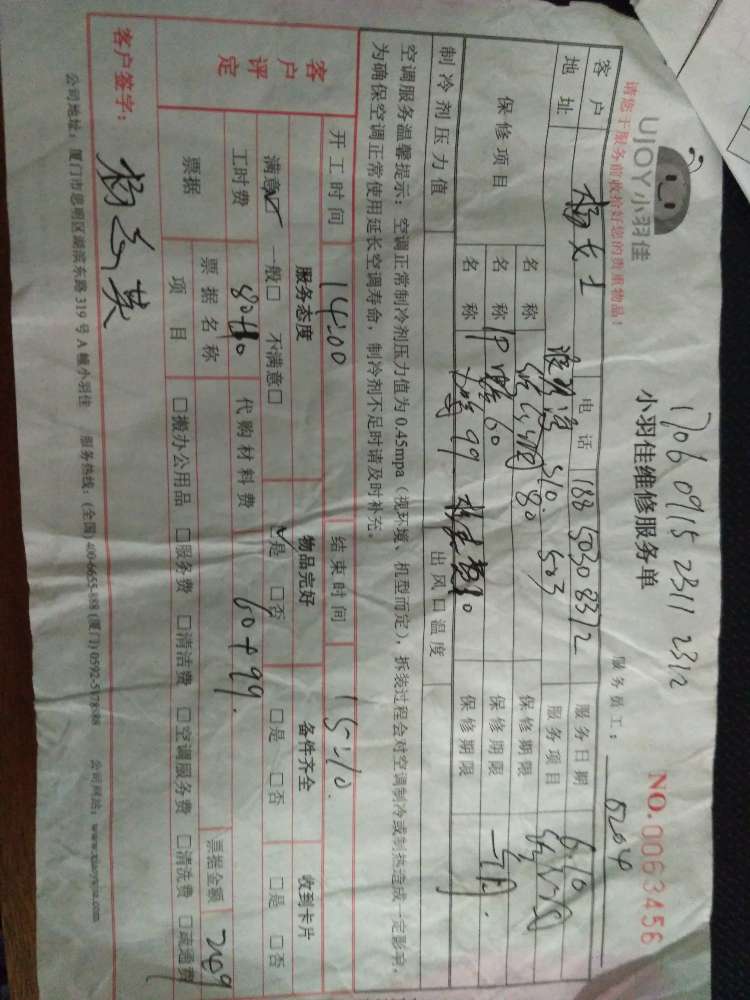 UJOY小羽佳
请您于服务前收拾好您的贵重物品!
1706 0915 2311 2312
小羽佳维修服务单
NO.0063456
服务员工: 0204
客户 杨女士 电话 188 5030 8372 服务日期 6.10
地址 510. 503 服务项目
保修项目 名称 80 保修期限
名称 1P 60 保修期限
名称 99 保修期限
制冷剂压力值 出风口温度
空调服务温馨提示:空调正常制冷剂压力值为0.45mpa(视环境、机型而定),拆装过程会对空调制冷或制热造成一定影响,
为确保空调正常使用延长空调寿命,制冷剂不足时请及时补充。
开工时间 14:00 结束时间 15:10.
客户评定 服务态度 物品完好 备件齐全 收到卡片
满意☑ 一般□ 不满意□ ☑是 □否 □是 □否 □是 □否
工时费 80+30 代购材料费 60+99.
票据 票据名称 票据金额 269
项目 □搬办公用品 □服务费 □清洁费 □空调服务费 □清洗费 □疏通费
客户签字:
公司地址:厦门市思明区湖滨东路319号A幢小羽佳 服务热线:(全国)400-6655-888(厦门)0592-5178788 公司网站:www.xiaoyujia.com